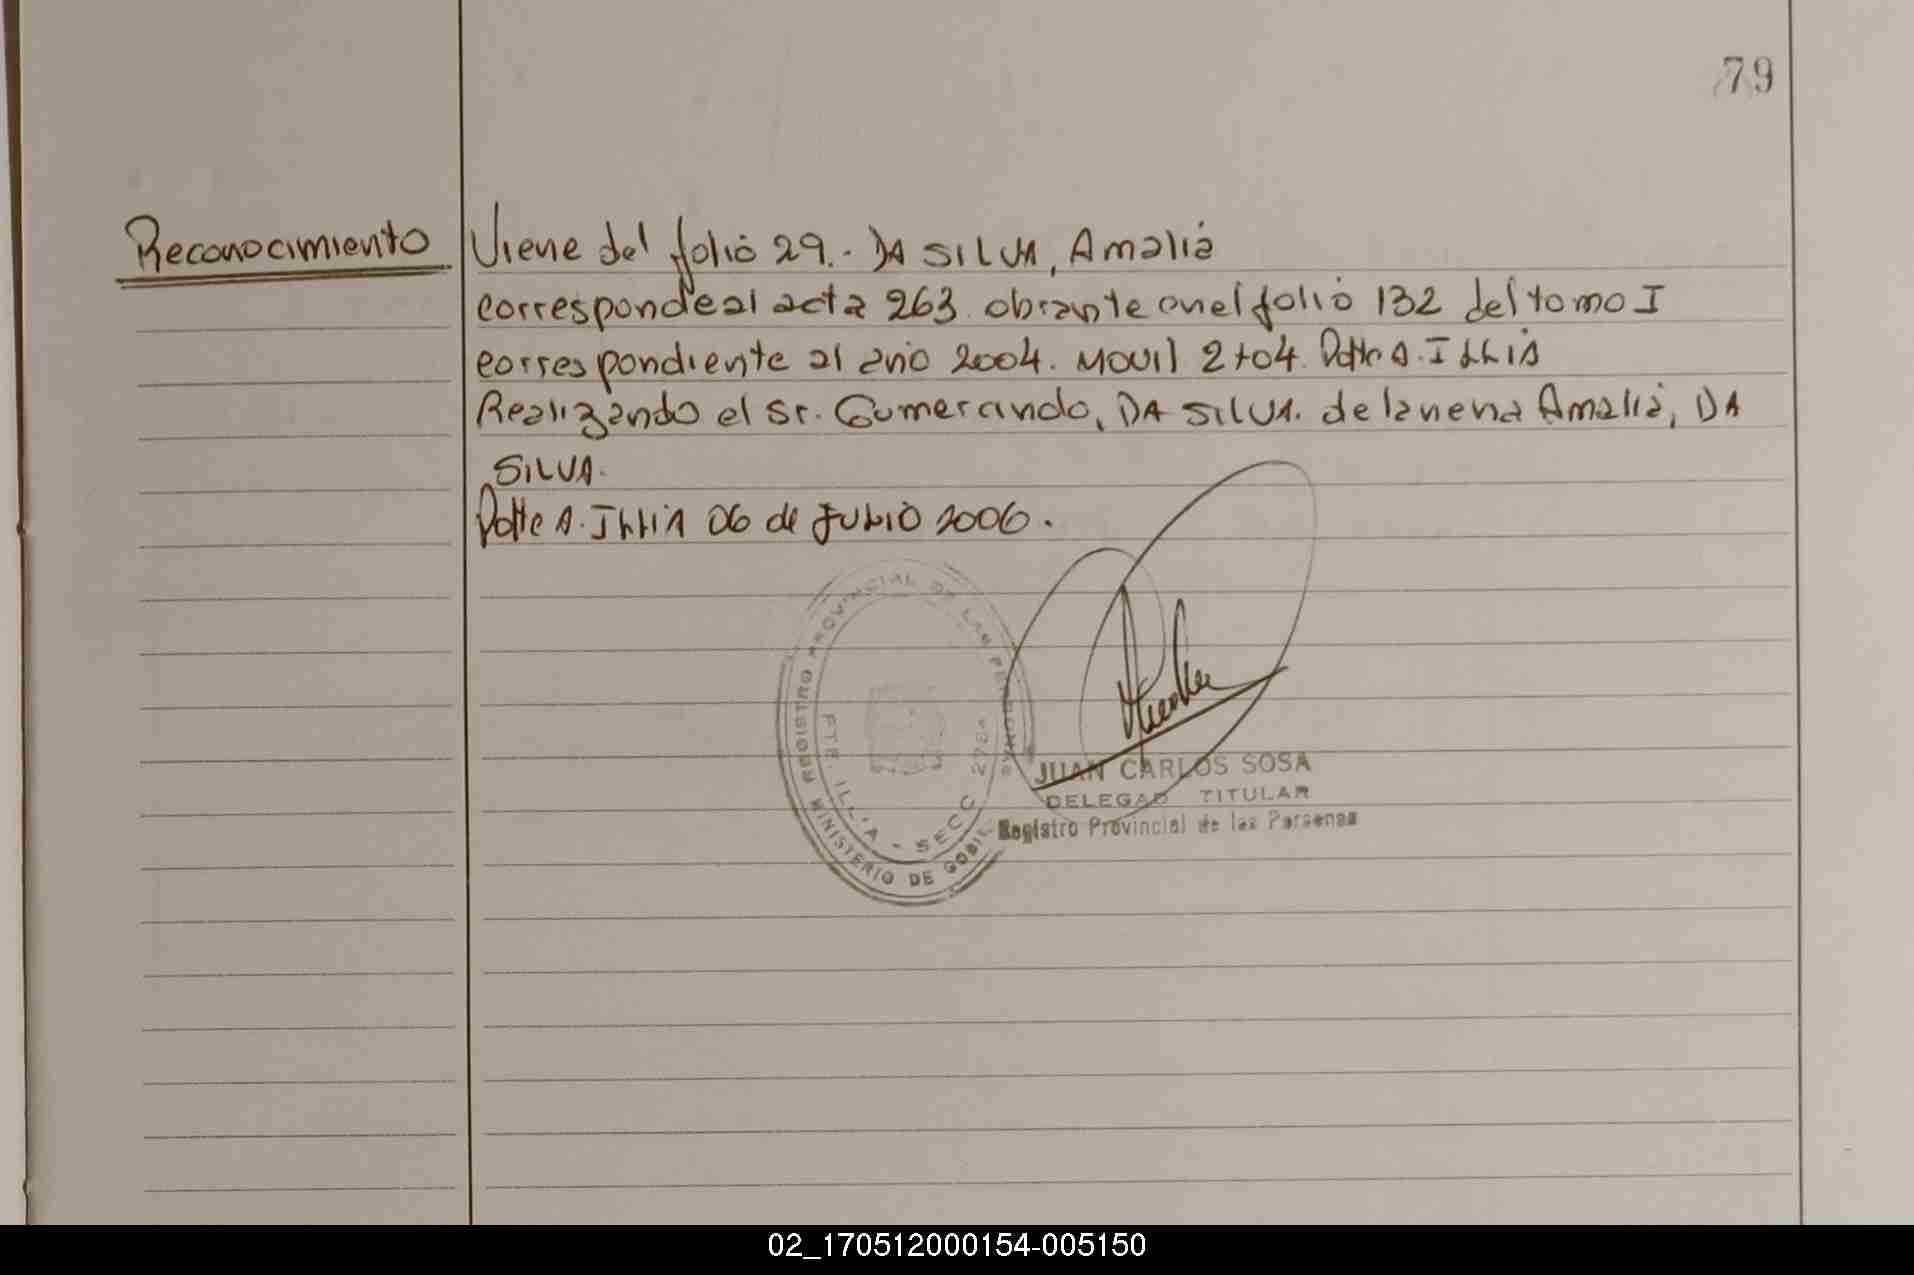 79
Reconocimiento
Viene del folio 29.- DA SILVA, Amalia
corresponde al acta 263 obrante en el folio 132 del tomo I
correspondiente al año 2004. MOVIL 2704. Pdtte A. ILLIA
Realizando el Sr. Gumercindo, DA SILVA. de la nena Amalia, DA
SILVA.
Pdtte A. ILLIA 06 de JULIO 2006.
REGISTRO PROVINCIAL DE LAS PERSONAS
MINISTERIO DE GOB
PTE. ILLIA - SECC
JUAN CARLOS SOSA
DELEGAD TITULAR
Registro Provincial de las Personas
02_170512000154-005150